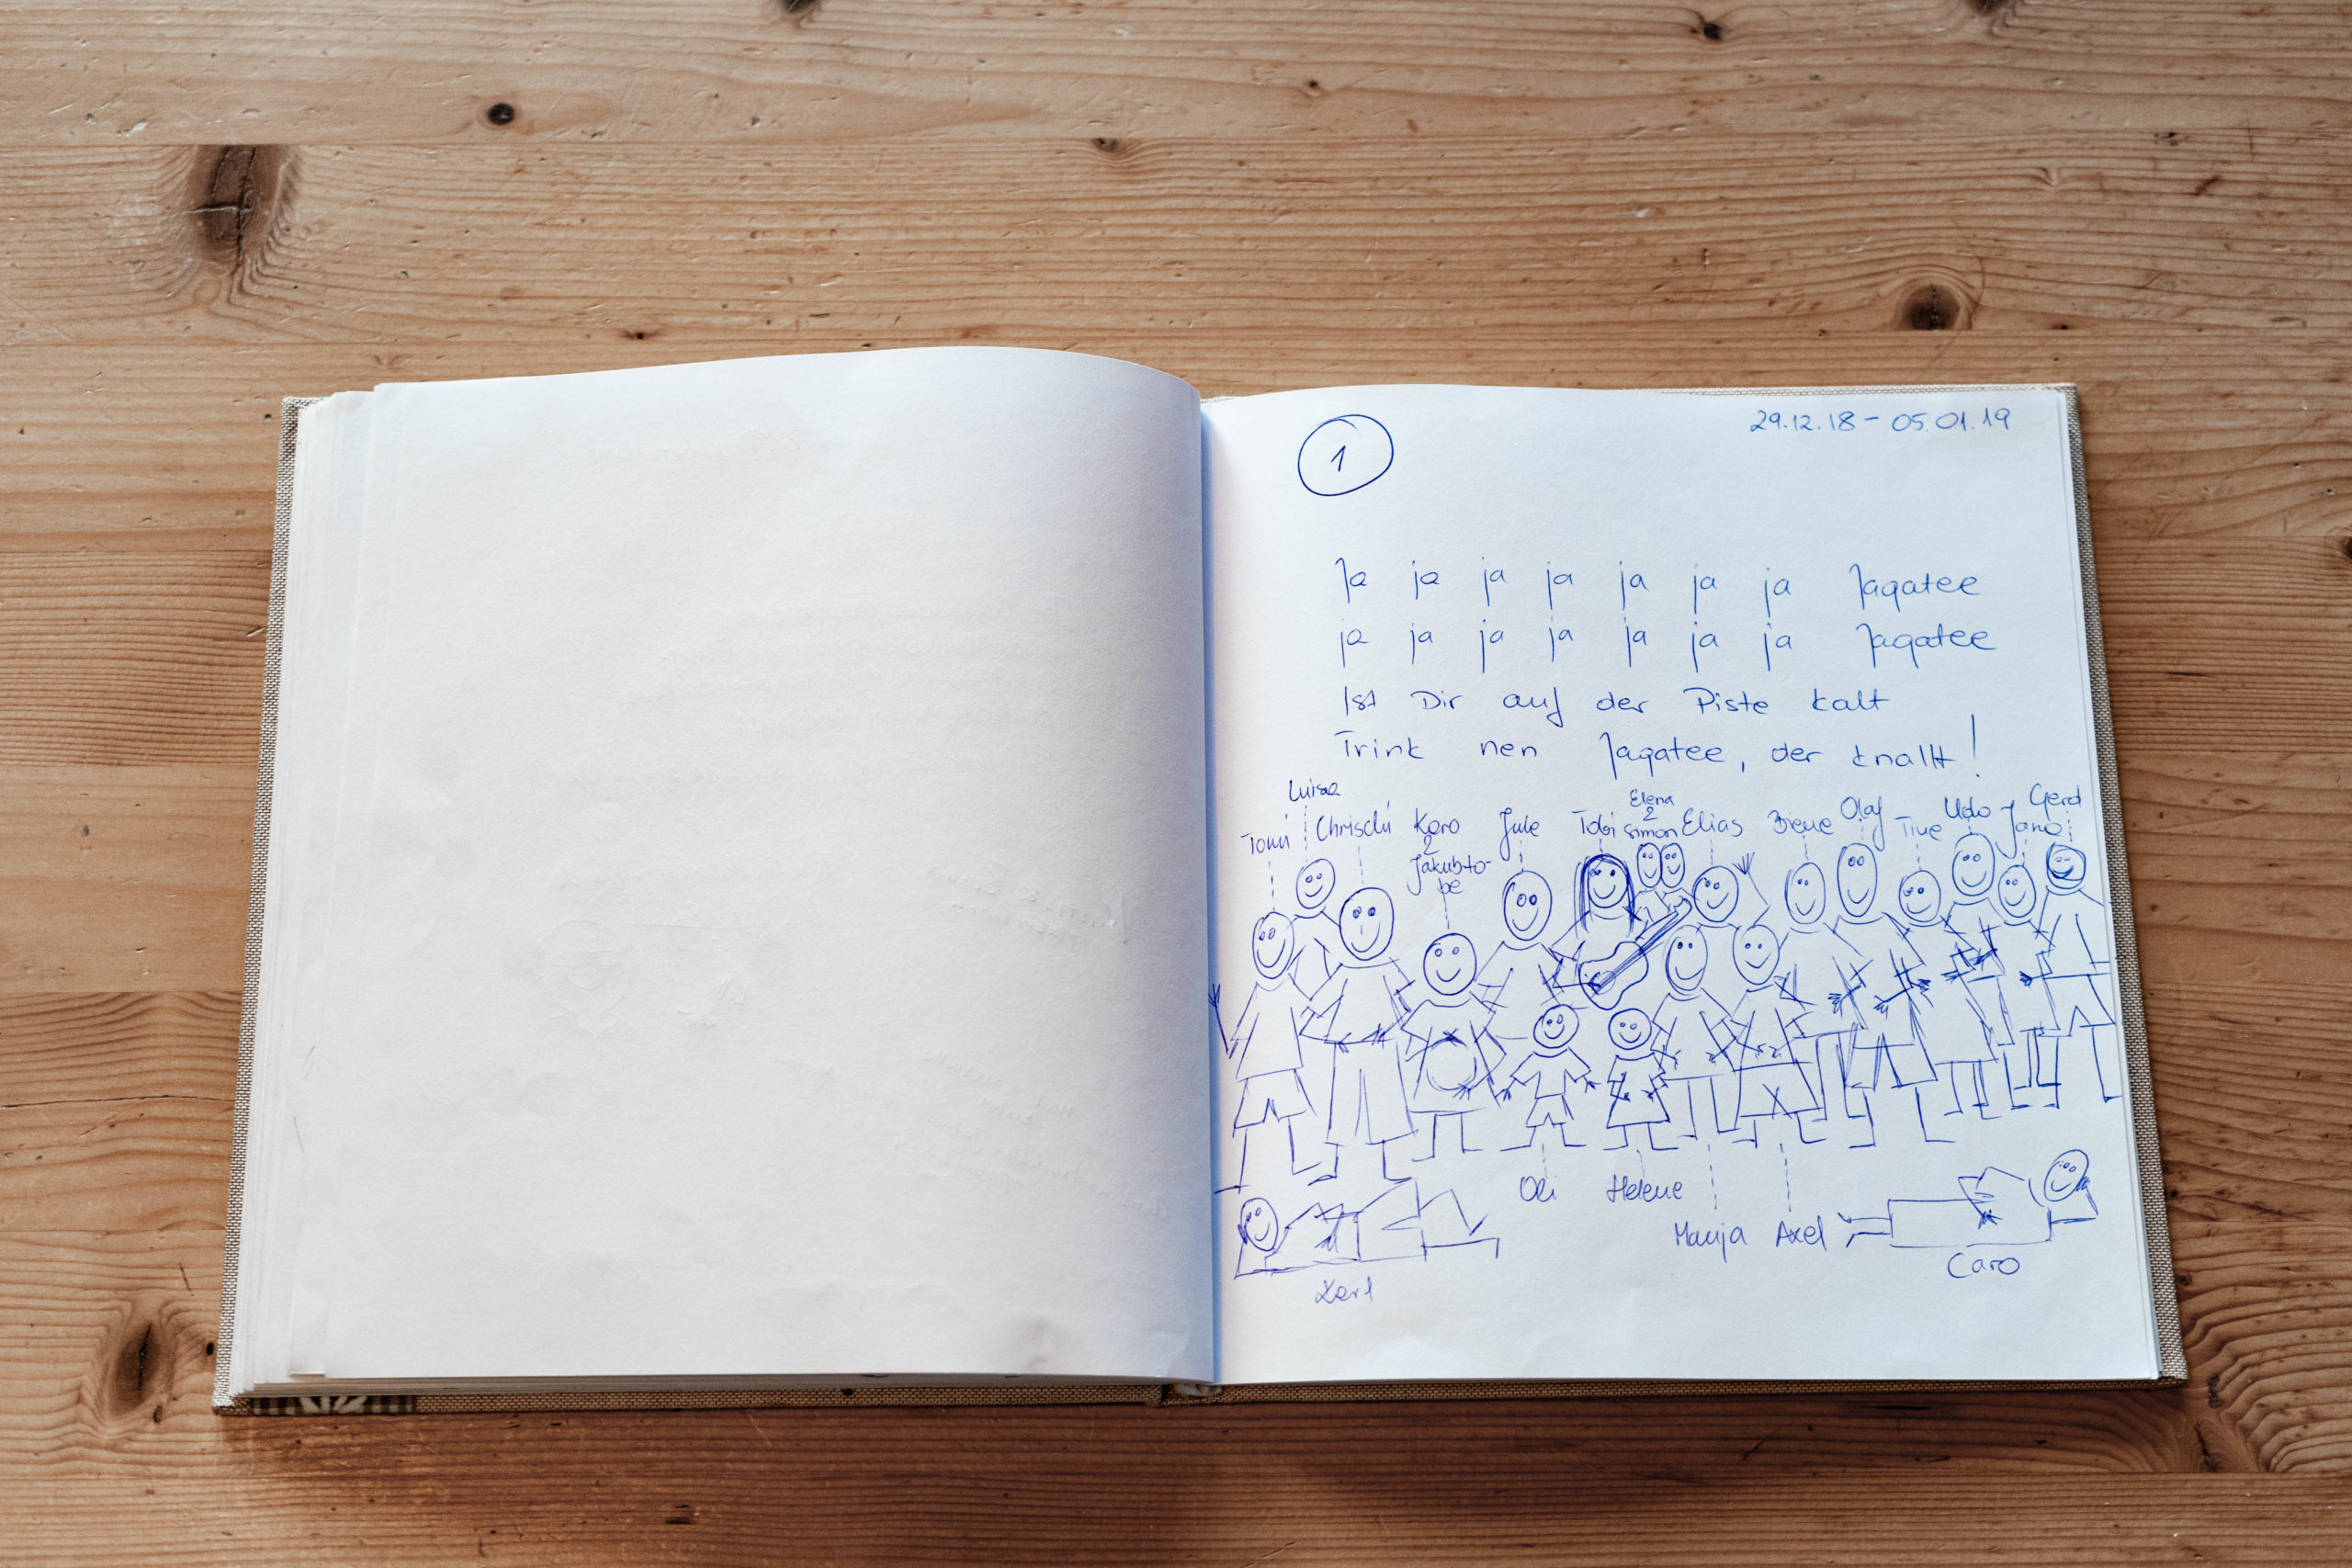 1
29.12.18 - 05.01.19
Ja ja ja ja ja ja ja Jagatee
ja ja ja ja ja ja ja Jagatee
Ist Dir auf der Piste kalt
Trink nen Jagatee, der knallt!
Luisa
Tomi Chrischi Karo Jule Tobi Elena & Simon Elias Irene Olaf Tine Udo Jana Gerd
&
Oli Helene
Manja Axel
Caro
Karl